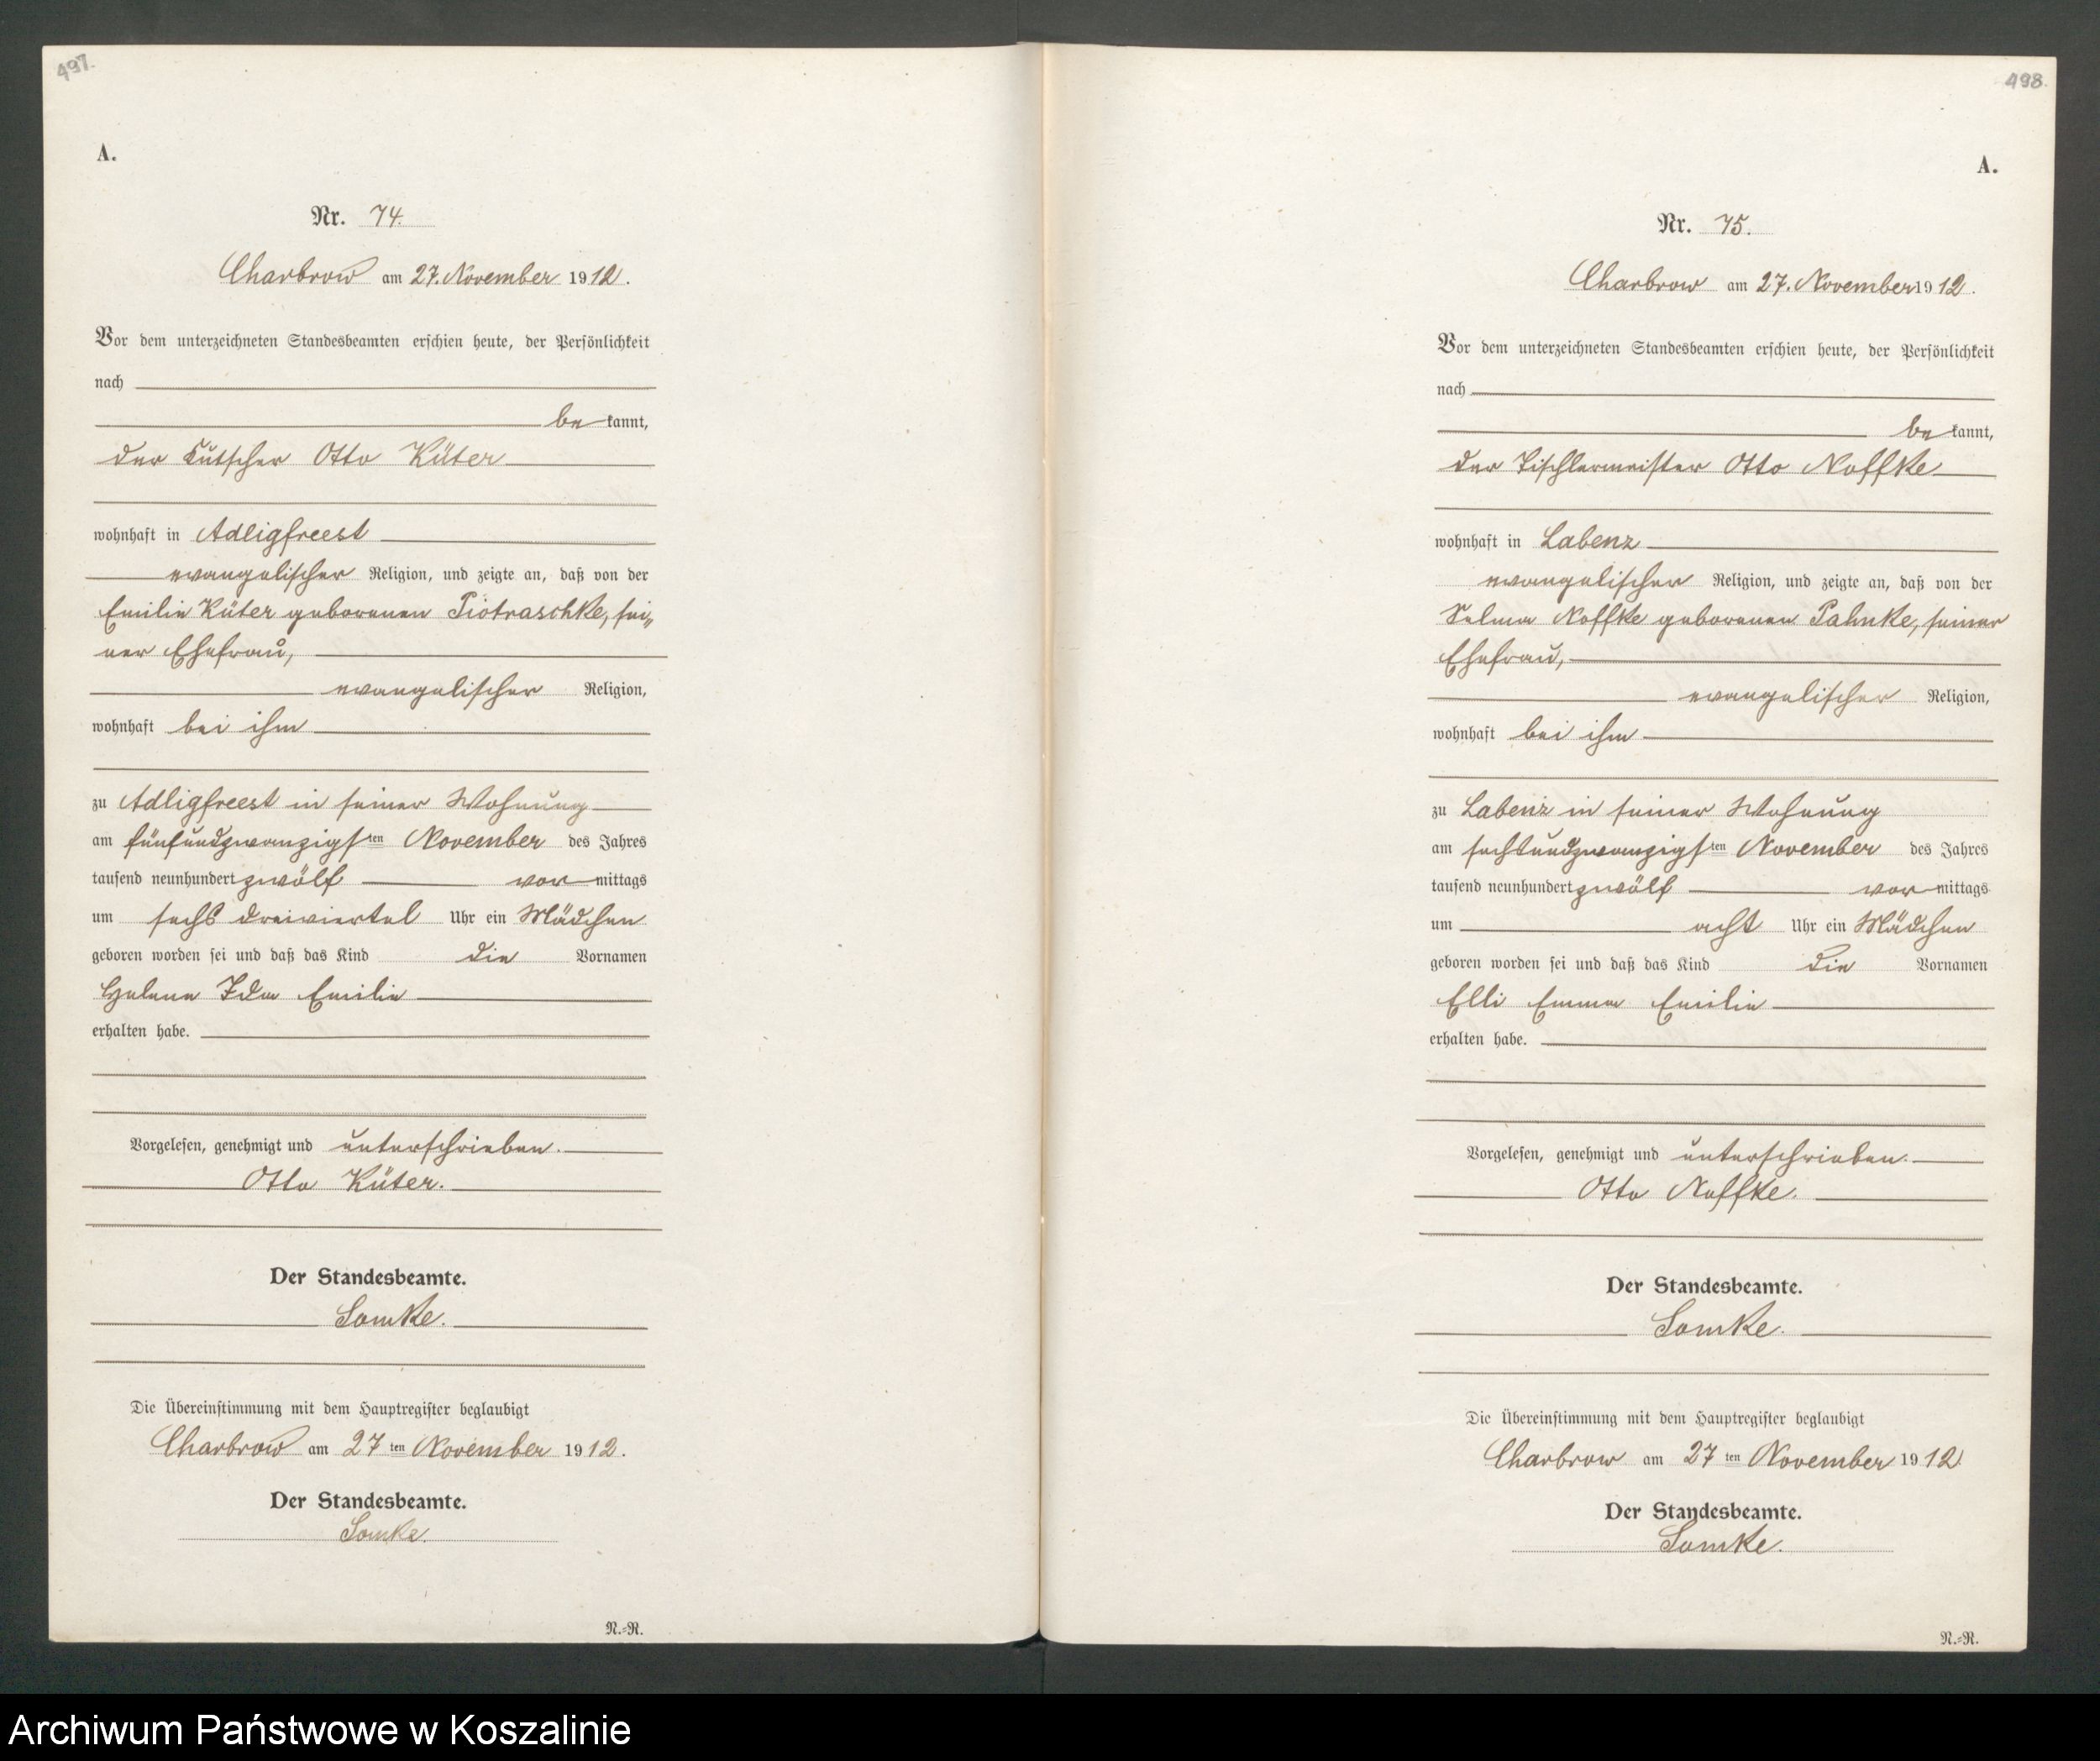 497.
A.
Nr. 74.
Charbrow am 27. November 1912.
Vor dem unterzeichneten Standesbeamten erschien heute, der Persönlichkeit
nach
be kannt,
der Kutscher Otto Küter
wohnhaft in Adligfreest
evangelischer Religion, und zeigte an, daß von der
Emilie Küter geborenen Piotraschke, sei„
ner Ehefrau,
evangelischer Religion,
wohnhaft bei ihm
zu Adligfreest in seiner Wohnung
am fünfundzwanzigsten November des Jahres
tausend neunhundert zwölf vor mittags
um sechs dreiviertel Uhr ein Mädchen
geboren worden sei und daß das Kind die Vornamen
Helene Ida Emilie
erhalten habe.
Vorgelesen, genehmigt und unterschrieben.
Otto Küter.
Der Standesbeamte.
Somke.
Die Übereinstimmung mit dem Hauptregister beglaubigt
Charbrow am 27 ten November 1912.
Der Standesbeamte.
Somke.
N.=R.
498.
A.
Nr. 75.
Charbrow am 27. November 1912.
Vor dem unterzeichneten Standesbeamten erschien heute, der Persönlichkeit
nach
be kannt,
der Tischlermeister Otto Noffke
wohnhaft in Labenz
evangelischer Religion, und zeigte an, daß von der
Selma Noffke geborenen Pahnke, seiner
Ehefrau,
evangelischer Religion,
wohnhaft bei ihm
zu Labenz in seiner Wohnung
am sechsundzwanzigsten November des Jahres
tausend neunhundert zwölf vor mittags
um acht Uhr ein Mädchen
geboren worden sei und daß das Kind die Vornamen
Elli Emma Emilie
erhalten habe.
Vorgelesen, genehmigt und unterschrieben.
Otto Noffke.
Der Standesbeamte.
Somke.
Die Übereinstimmung mit dem Hauptregister beglaubigt
Charbrow am 27 ten November 1912.
Der Standesbeamte.
Somke.
N.=R.
Archiwum Państwowe w Koszalinie